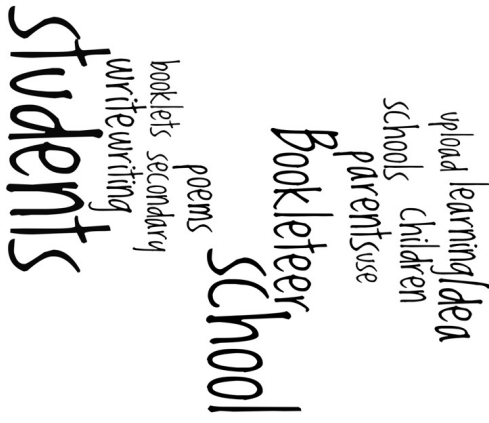 upload learning Idea
schools Children
parents use
Bookleteer
school
poems
booklets secondary
write writing
students